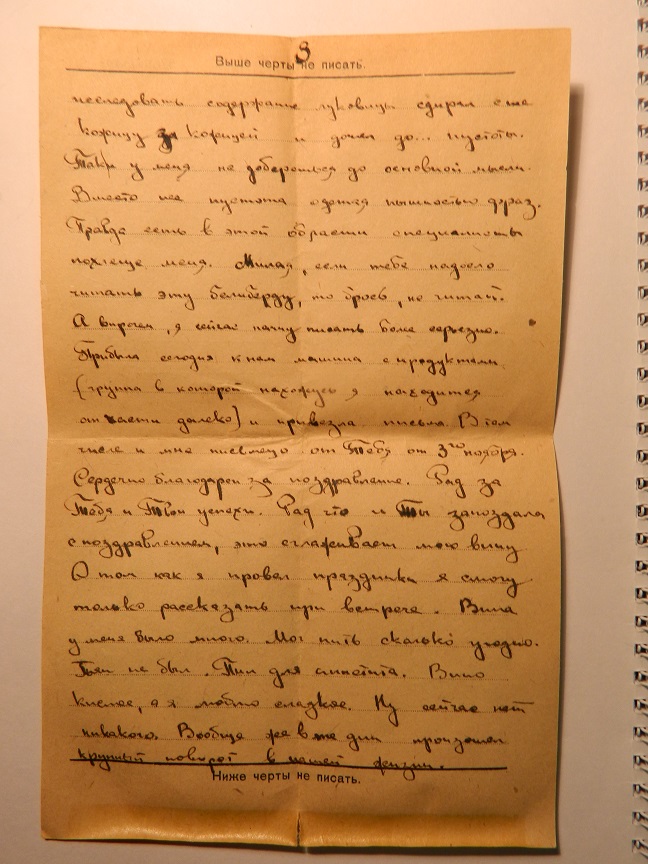 3
Выше черты не писать.
исследовать содержание луковицы сдирал с нее
кожицу за кожицей и дошел до... пустоты.
Так и у меня не доберешься до основной мысли.
Вместо нее пустота одетая пышностью фраз.
Правда есть в этой области специалисты
похлеще меня. Милая, если тебе надоело
читать эту белиберду, то брось, не читай.
А впрочем, я сейчас начну писать более серьезно.
Прибыла сегодня к нам машина с продуктами
(группа в которой нахожусь я находится
от части далеко) и привезла письма. В том
числе и мне письмецо от Тебя от 3го ноября.
Сердечно благодарен за поздравление. Рад за
Тебя и Твои успехи. Рад что и Ты запоздала
с поздравлением, это сглаживает мою вину
О том как я провел праздники я смогу
только рассказать при встрече. Вина
у меня было много. Мог пить сколько угодно.
Пьян не был. Пил для аппетита. Вино
кислое, а я люблю сладкое. Ну сейчас нет
никакого. Вообще же в те дни произошел
крупный поворот в нашей жизни.
Ниже черты не писать.